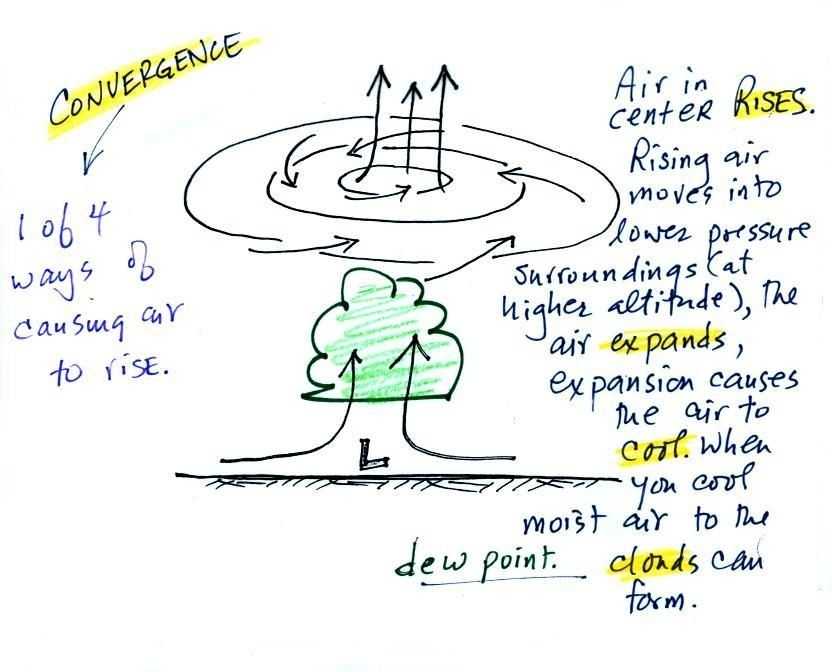 CONVERGENCE
1 of 4
ways of
causing air
to rise.
Air in
center RISES.
Rising air
moves into
lower pressure
surroundings (at
higher altitude), the
air expands,
expansion causes
the air to
cool. When
you cool
moist air to the
dew point. clouds can
form.
L